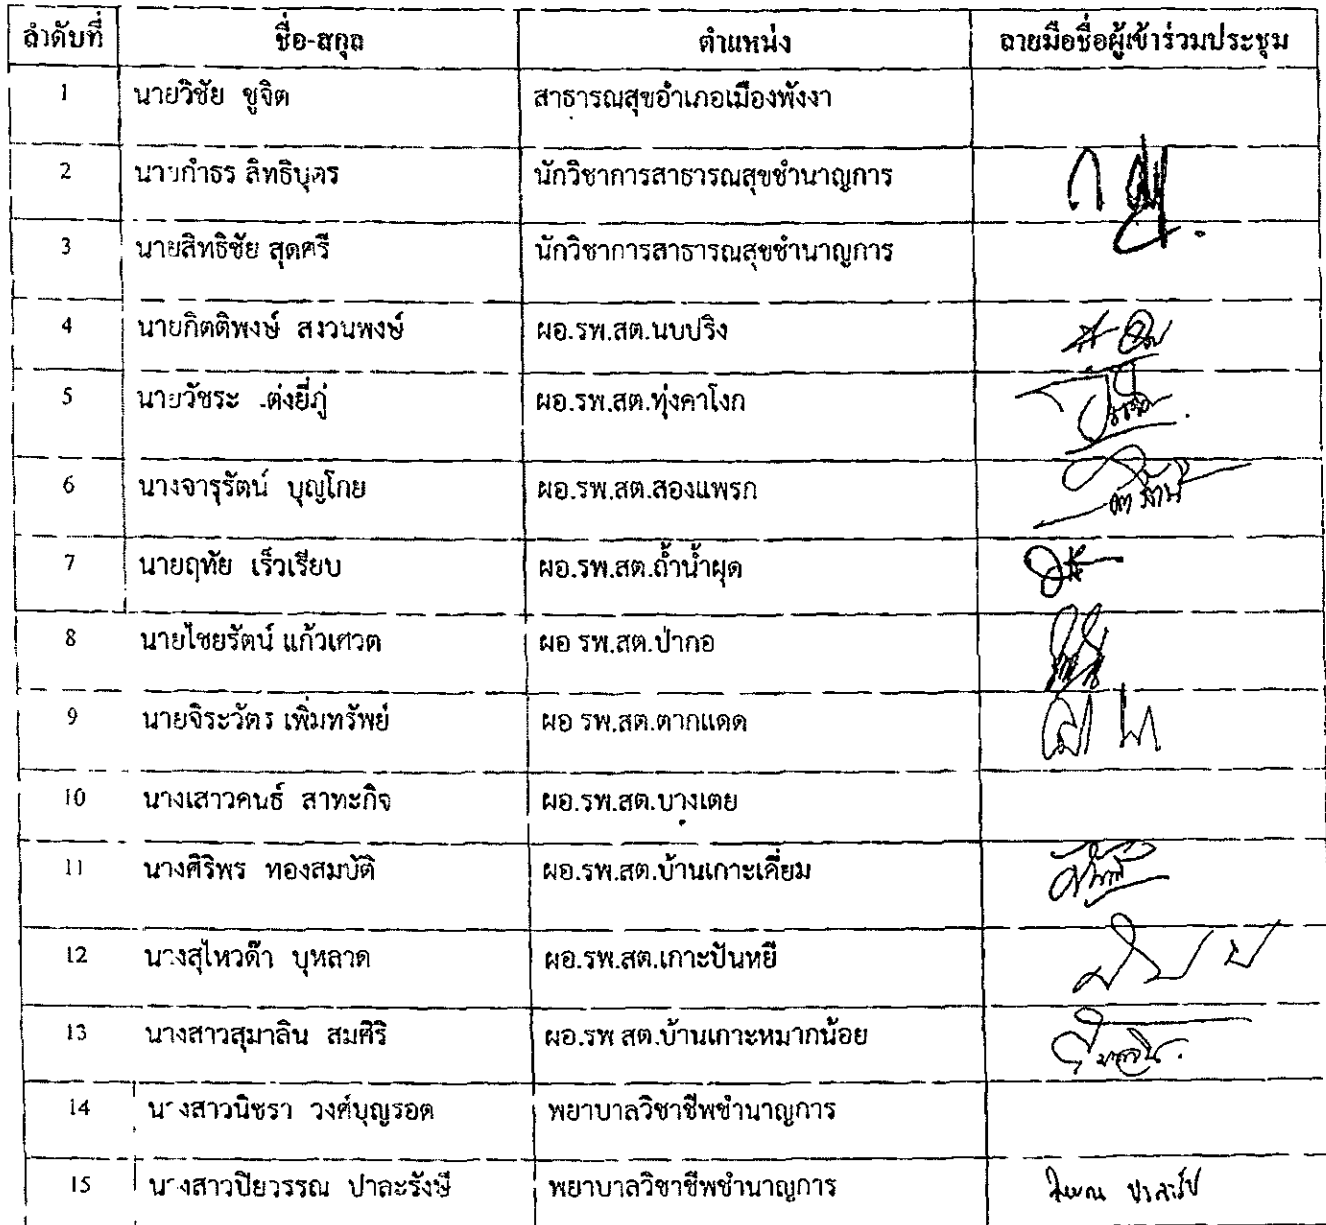 ลำดับที่ ชื่อ-สกุล ตำแหน่ง ลายมือชื่อผู้เข้าร่วมประชุม
1 นายวิชัย ชูจิต สาธารณสุขอำเภอเมืองพังงา
2 นายกำธร สิทธิบุตร นักวิชาการสาธารณสุขชำนาญการ
3 นายสิทธิชัย สุดศรี นักวิชาการสาธารณสุขชำนาญการ
4 นายกิตติพงษ์ สงวนพงษ์ ผอ.รพ.สต.นบปริง
5 นายวัชระ ต่งยี่ภู่ ผอ.รพ.สต.ทุ่งคาโงก
6 นางจารุรัตน์ บุญโกย ผอ.รพ.สต.สองแพรก
7 นายฤทัย เร็วเรียบ ผอ.รพ.สต.ถ้ำน้ำผุด
8 นายไชยรัตน์ แก้วเศวต ผอ รพ.สต.ป่ากอ
9 นายจิระวัตร เพิ่มทรัพย์ ผอ รพ.สต.ตากแดด
10 นางเสาวคนธ์ สาทะกิจ ผอ.รพ.สต.บางเตย
11 นางศิริพร ทองสมบัติ ผอ.รพ.สต.บ้านเกาะเคี่ยม
12 นางสุไหวด๊า บุหลาด ผอ.รพ.สต.เกาะปันหยี
13 นางสาวสุมาลิน สมศิริ ผอ.รพ สต.บ้านเกาะหมากน้อย
14 นางสาวนิชรา วงศ์บุญรอด พยาบาลวิชาชีพชำนาญการ
15 นางสาวปิยวรรณ ปาละรังษี พยาบาลวิชาชีพชำนาญการ